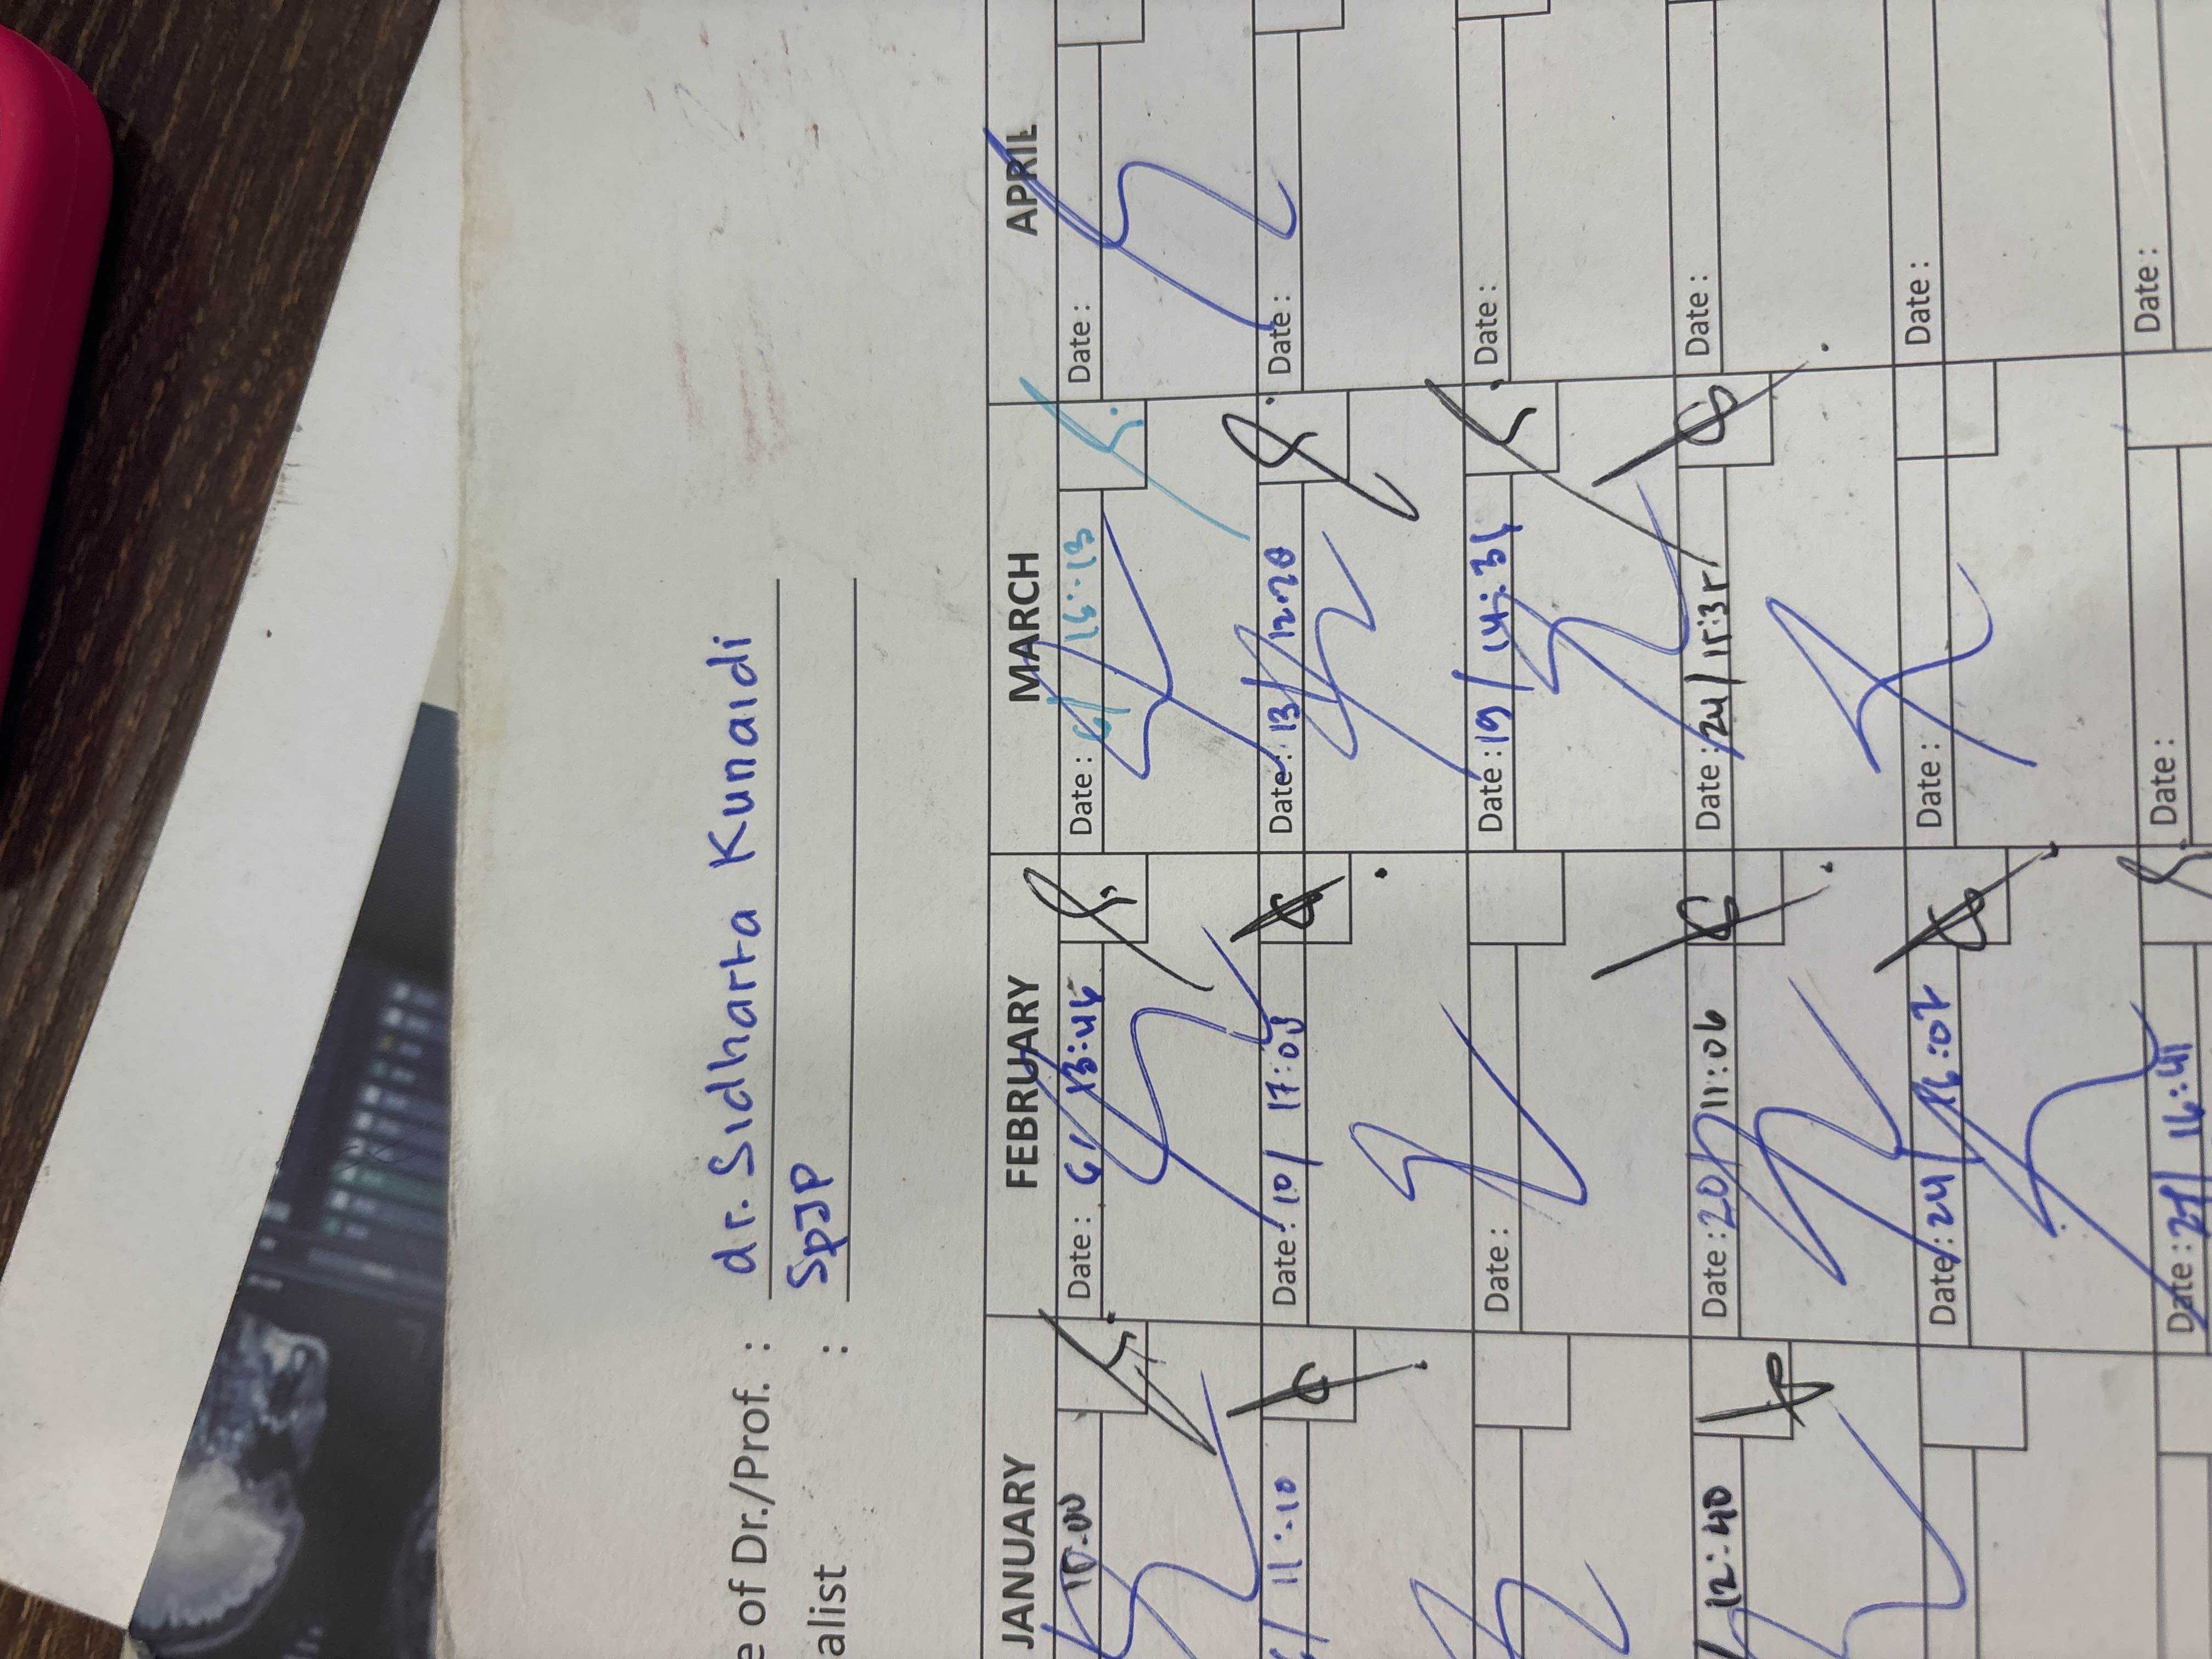 e of Dr./Prof. : dr. Sidharta Kunaidi
alist : SpJP
JANUARY FEBRUARY MARCH APRIL
15.00 Date : 6/ 13:46 Date : 6/ 16:13 Date :
/ 11:10 Date : 10/ 17:03 Date : 13/ 12.20 Date :
Date : Date : 19/ 14:36 Date :
12:40 Date : 20/ 11:06 Date : 24/ 15:35 Date :
Date : 24/ 16:02 Date : Date :
Date : 16:41 Date : Date :